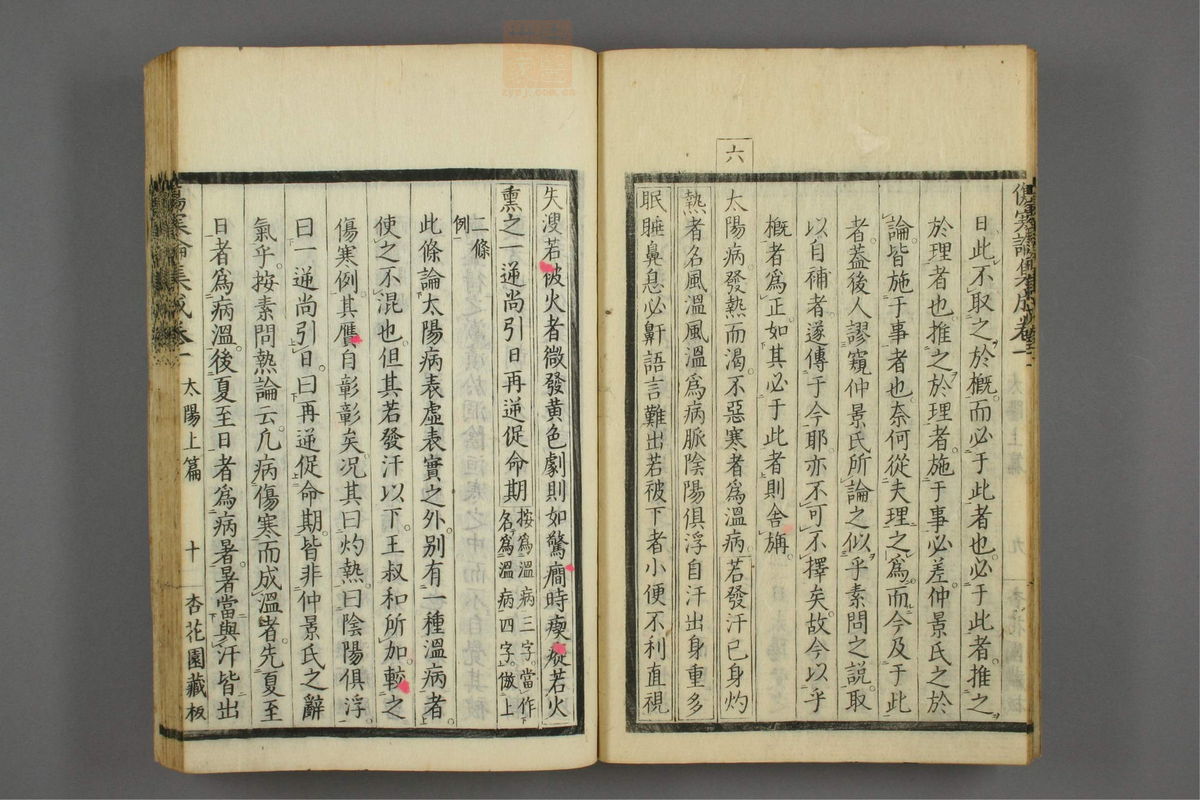 日此不取之於概而必于此者也必于此者推之
於理者也推之於理者施于事必差仲景氏之於
論皆施于事者也奈何從夫理之爲而今及于此
者蓋後人謬窺仲景氏所論之似乎素問之說取
以自補者遂傳于今耶亦不可不擇矣故今以乎
概者爲正如其必于此者則舍旃
六
太陽病發熱而渴不惡寒者爲溫病若發汗已身灼
熱者名風溫風溫爲病脈陰陽俱浮自汗出身重多
眠睡鼻息必鼾語言難出若被下者小便不利直視
失溲若被火者微發黃色劇則如驚癎時瘈瘲若火
熏之一逆尚引日再逆促命期按爲溫病三字當作名爲溫病四字倣上
二條例
此條論太陽病表虛表實之外別有一種溫病者
使之不混也但其若發汗以下王叔和所加較之
傷寒例其贋自彰彰矣况其曰灼熱曰陰陽俱浮
曰一逆尚引日曰再逆促命期皆非仲景氏之辭
氣乎按素問熱論云凡病傷寒而成溫者先夏至
日者爲病溫後夏至日者爲病暑暑當與汗皆出
傷寒論集成卷一
太陽上篇
十
杏花園藏板